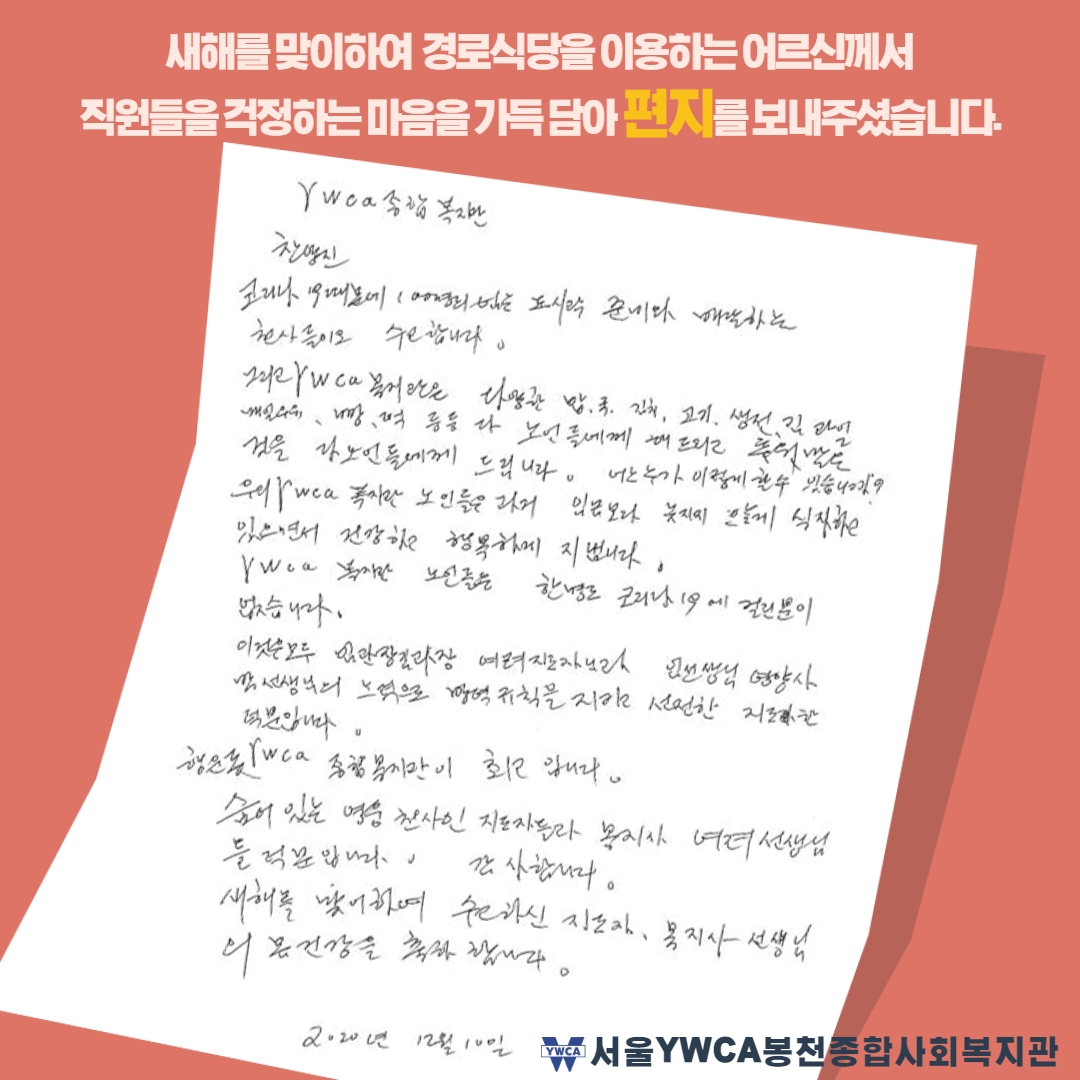 새해를 맞이하여 경로식당을 이용하는 어르신께서
직원들을 걱정하는 마음을 가득 담아 편지를 보내주셨습니다.
YWCA 종합 복지관
코리나 19때문에 도시락 준비와 배달하는
천사들이요 수고합니다.
그리고 YWCA 복지관은 다양한 밥, 국, 김치, 고기, 생선, 김 과일
빵, 떡 등등 다 노인들에게 때 드리고
것을 각 노인들에게 드립니다. 어느누가 이렇게 할수 있습니까?
우리 YWCA 복지관 노인들은 과거 못지지 않게 식사하고
있으면서 건강하고 행복하게 지냅니다.
YWCA 복지관 노인들은 한명도 코리나 19에 걸린분이
없습니다.
이것은모두 여려지도자님과 영양사
선생님의 노력으로 방역규칙을 지키고 선전한 지도한
덕분입니다.
행운동 YWCA 종합복지관이 최고 입니다.
숨어 있는 영웅 천사인 지도자들과 복지사 여려 선생님
들 덕분입니다. 감사합니다.
새해를 맞이하여 수고하신 지도자, 복지사 선생님
의 몸건강을 축하 합니다.
2020년 12월 10일
YWCA 서울YWCA봉천종합사회복지관